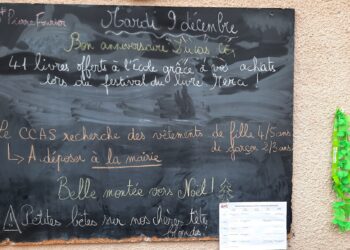 Pierre Fournier
Mardi 9 décembre
Bon anniversaire
41 livres offerts à l'École grâce à vos achats
lors du festival du livre. Merci !
Le CCAS recherche des vêtements de fille 4/5 ans
de garçon 2/3 ans
↳ A déposer à la mairie
Belle montée vers Noël !
Petites bêtes sur nos chères têtes
blondes